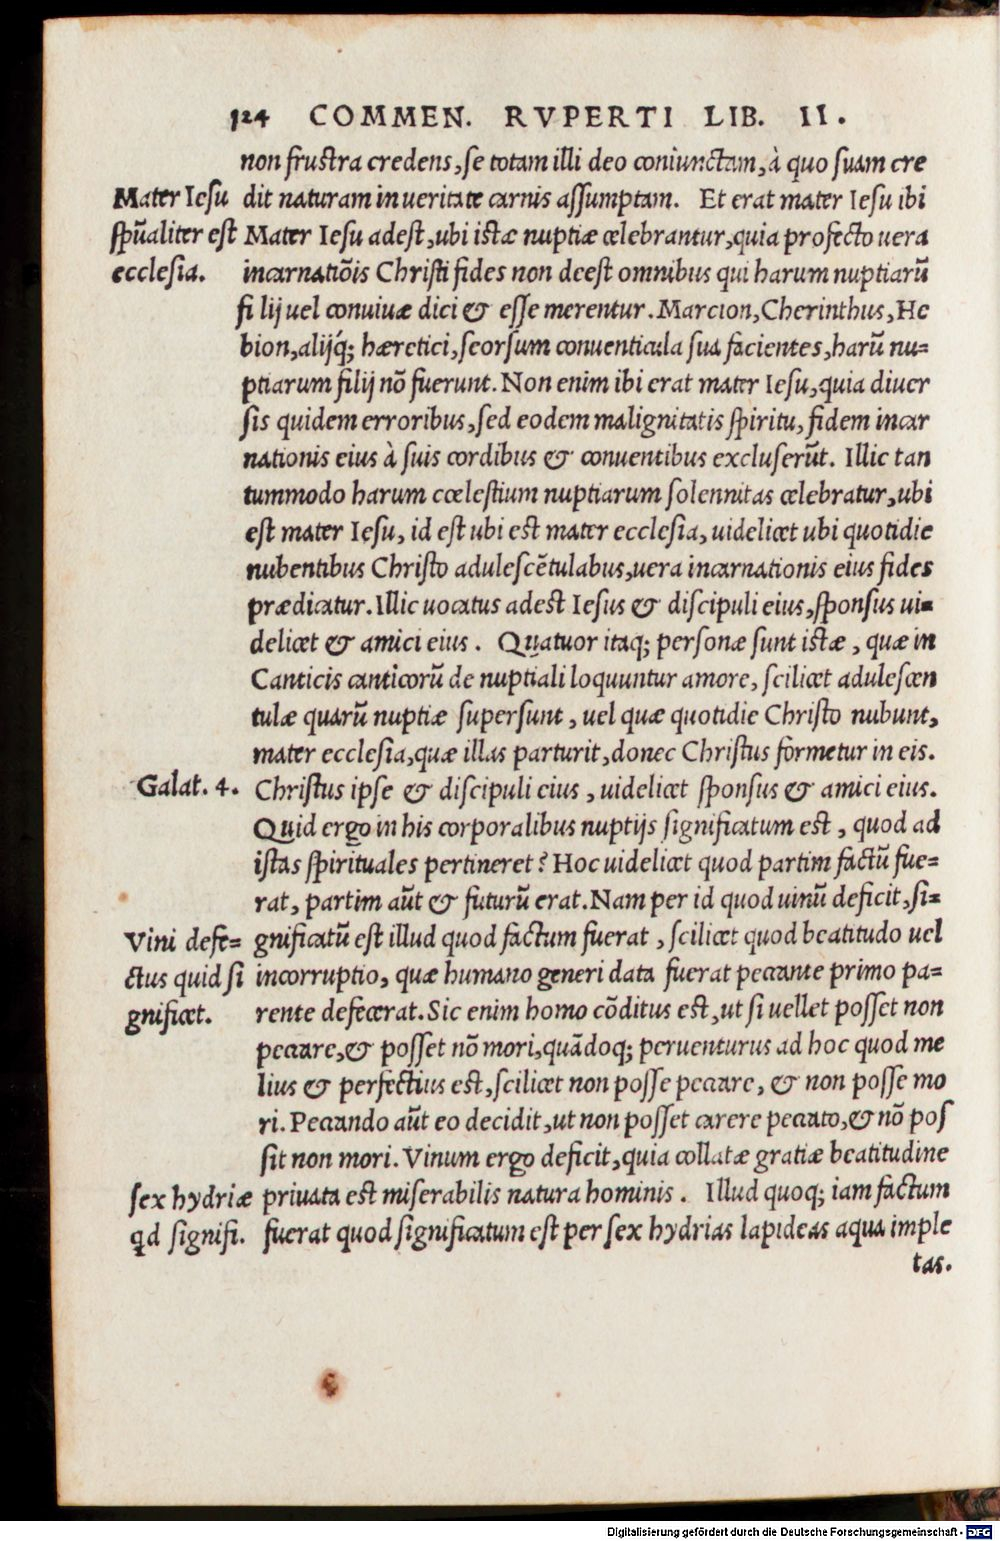 124 COMMEN. RVPERTI LIB. II.
non frustra credens, se totam illi deo coniunctam, à quo suam cre
Mater Iesu dit naturam in ueritate carnis assumptam. Et erat mater Iesu ibi
spũaliter est Mater Iesu adest, ubi istæ nuptiæ celebrantur, quia profecto uera
ecclesia. incarnatiõis Christi fides non deest omnibus qui harum nuptiarũ
filij uel conuiuæ dici & esse merentur. Marcion, Cherinthus, He
bion, alijq́; hæretici, seorsum conuenticula sua facientes, harũ nu=
ptiarum filij nõ fuerunt. Non enim ibi erat mater Iesu, quia diuer
sis quidem erroribus, sed eodem malignitatis spiritu, fidem incar
nationis eius à suis cordibus & conuentibus excluserũt. Illic tan
tummodo harum cœlestium nuptiarum solennitas celebratur, ubi
est mater Iesu, id est ubi est mater ecclesia, uidelicet ubi quotidie
nubentibus Christo adulescẽtulabus, uera incarnationis eius fides
prædicatur. Illic uocatus adest Iesus & discipuli eius, sponsus ui=
delicet & amici eius. Quatuor itaq; personæ sunt istæ, quæ in
Canticis canticorũ de nuptiali loquuntur amore, scilicet adulescen
tulæ quarũ nuptiæ supersunt, uel quæ quotidie Christo nubunt,
mater ecclesia, quæ illas parturit, donec Christus formetur in eis.
Galat. 4. Christus ipse & discipuli eius, uidelicet sponsus & amici eius.
Quid ergo in his corporalibus nuptijs significatum est, quod ad
istas spirituales pertineret? Hoc uidelicet quod partim factũ fue=
rat, partim aũt & futurũ erat. Nam per id quod uinũ deficit, si=
Vini defe= gnificatũ est illud quod factum fuerat, scilicet quod beatitudo uel
ctus quid si incorruptio, quæ humano generi data fuerat peccante primo pa=
gnificet. rente defecerat. Sic enim homo cõditus est, ut si uellet posset non
peccare, & posset nõ mori, quãdoq; peruenturus ad hoc quod me
lius & perfectius est, scilicet non posse peccare, & non posse mo
ri. Peccando aũt eo decidit, ut non posset carere peccato, & nõ pos
sit non mori. Vinum ergo deficit, quia collatæ gratiæ beatitudine
sex hydriæ priuata est miserabilis natura hominis. Illud quoq; iam factum
qd signifi. fuerat quod significatum est per sex hydrias lapideas aqua imple
tas.
Digitalisierung gefördert durch die Deutsche Forschungsgemeinschaft - DFG